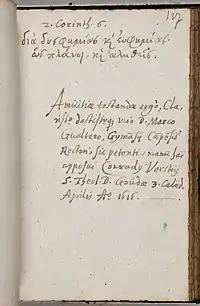 127
2. Corinth. 6.
διὰ δυσφημίας κ̀ εὐφημίας.
ὡς πλάνοι, κ̀ ἀληθεῖς.
Amicitiæ testandæ ergò, Cla-
doctissimo viro D. Marco
Gualtero, Gymnasij
Rectori, sic petenti, manu hac
apposui Conradus Vorstius
S. Theol. D. Goudæ 3. Calend.
Aprilis Aº 1616.